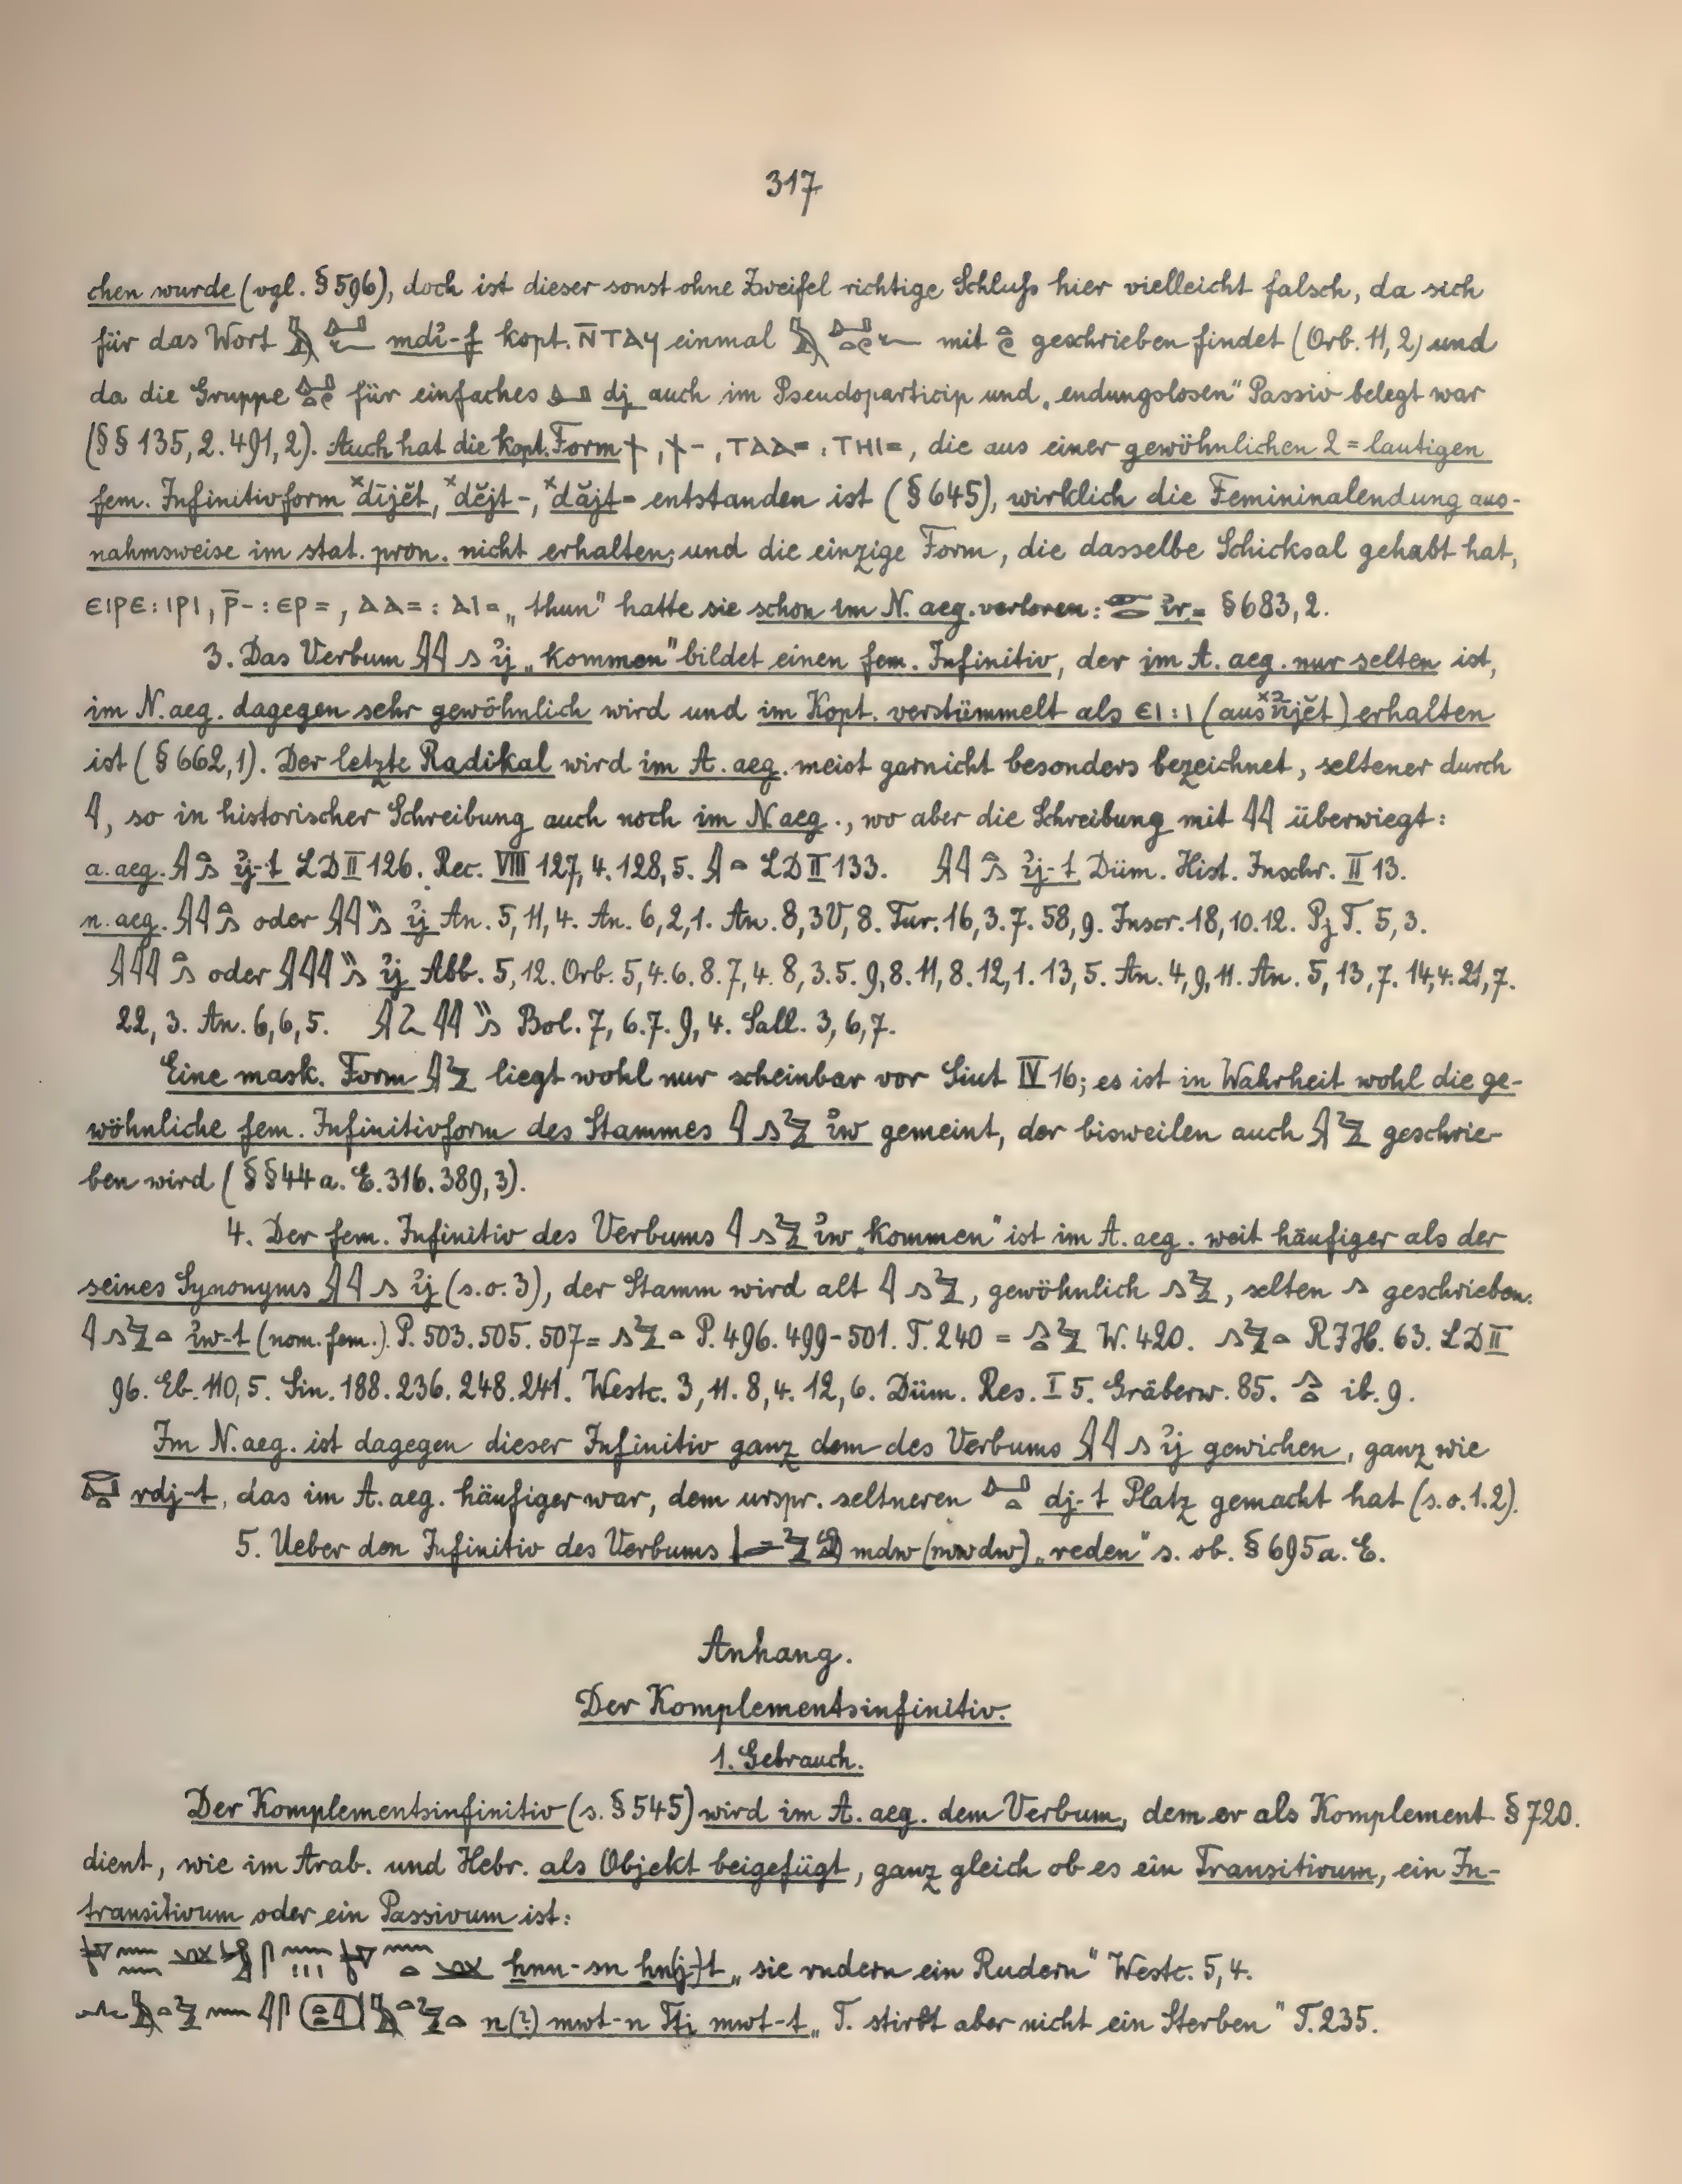 317
chen wurde (vgl. § 596), doch ist dieser sonst ohne Zweifel richtige Schluß hier vielleicht falsch, da sich
für das Wort mdỉ-f kopt. N̄TAϤ einmal mit geschrieben findet (Orb. 11, 2) und
da die Gruppe für einfaches dj auch im Pseudoparticip und „endungslosen" Passiv belegt war
(§§ 135, 2. 491, 2). Auch hat die kopt. Form ϯ, ϯ-, ⲦⲀⲀ= : ⲦⲎⲒ=, die aus einer gewöhnlichen 2=lautigen
fem. Infinitivform ˣdījĕt, ˣdĕjt-, ˣdăjt= entstanden ist (§ 645), wirklich die Femininalendung aus-
nahmsweise im stat. pron. nicht erhalten; und die einzige Form, die dasselbe Schicksal gehabt hat,
ⲈⲒⲢⲈ : ⲒⲢⲒ, Ⲣ̄- : ⲈⲢ=, ⲀⲀ= : ⲀⲒ= „thun" hatte sie schon im N. aeg. verloren: ỉr= § 683, 2.
3. Das Verbum ỉj „kommen" bildet einen fem. Infinitiv, der im A. aeg. nur selten ist,
im N. aeg. dagegen sehr gewöhnlich wird und im Kopt. verstümmelt als ⲈⲒ : Ⲓ (aus) erhalten
ist (§ 662, 1). Der letzte Radikal wird im A. aeg. meist garnicht besonders bezeichnet, seltener durch
𓇋, so in historischer Schreibung auch noch im N aeg., wo aber die Schreibung mit 𓇋𓇋 überwiegt:
a. aeg. ỉj-t LD II 126. Rec. VIII 127, 4. 128, 5. LD II 133. ỉj-t Düm. Hist. Inschr. II 13.
n. aeg. oder ỉj An. 5, 11, 4. An. 6, 2, 1. An. 8, 3V, 8. Tur. 16, 3. 7. 58, 9. Inscr. 18, 10. 12. Pj T. 5, 3.
oder ỉj Abb. 5, 12. Orb. 5, 4. 6. 8. 7, 4. 8, 3. 5. 9, 8. 11, 8. 12, 1. 13, 5. An. 4, 9, 11. An. 5, 13, 7. 14, 4. 21, 7.
22, 3. An. 6, 6, 5. Bol. 7, 6. 7. 9, 4. Sall. 3, 6, 7.
Eine mask. Form liegt wohl nur scheinbar vor Siut IV 16; es ist in Wahrheit wohl die ge-
wöhnliche fem. Infinitivform des Stammes ỉw gemeint, der bisweilen auch geschrie-
ben wird (§§ 44 a. E. 316. 389, 3).
4. Der fem. Infinitiv des Verbums ỉw „kommen" ist im A. aeg. weit häufiger als der
seines Synonyms ỉj (s. o. 3), der Stamm wird alt, gewöhnlich, selten geschrieben.
ỉw-t (nom. fem.) P. 503. 505. 507 = P. 496. 499-501. T. 240 = W. 420. RJH. 63. LD II
96. Eb. 110, 5. Sin. 188. 236. 248. 241. Westc. 3, 11. 8, 4. 12, 6. Düm. Res. I 5. Gräberw. 85. ib. 9.
Im N. aeg. ist dagegen dieser Infinitiv ganz dem des Verbums ỉj gewichen, ganz wie
rdj-t, das im A. aeg. häufiger war, dem urspr. seltneren dj-t Platz gemacht hat (s. o. 1. 2).
5. Ueber den Infinitiv des Verbums mdw (mwdw) „reden" s. ob. § 695 a. E.
Anhang.
Der Komplementsinfinitiv.
1. Gebrauch.
Der Komplementsinfinitiv (s. § 545) wird im A. aeg. dem Verbum, dem er als Komplement § 720.
dient, wie im Arab. und Hebr. als Objekt beigefügt, ganz gleich ob es ein Transitivum, ein In-
transitivum oder ein Passivum ist:
ẖnn-sn ẖn(j)-t „sie rudern ein Rudern" Westc. 5, 4.
n(?) mwt-n Ttj mwt-t „T. stirbt aber nicht ein Sterben" T. 235.